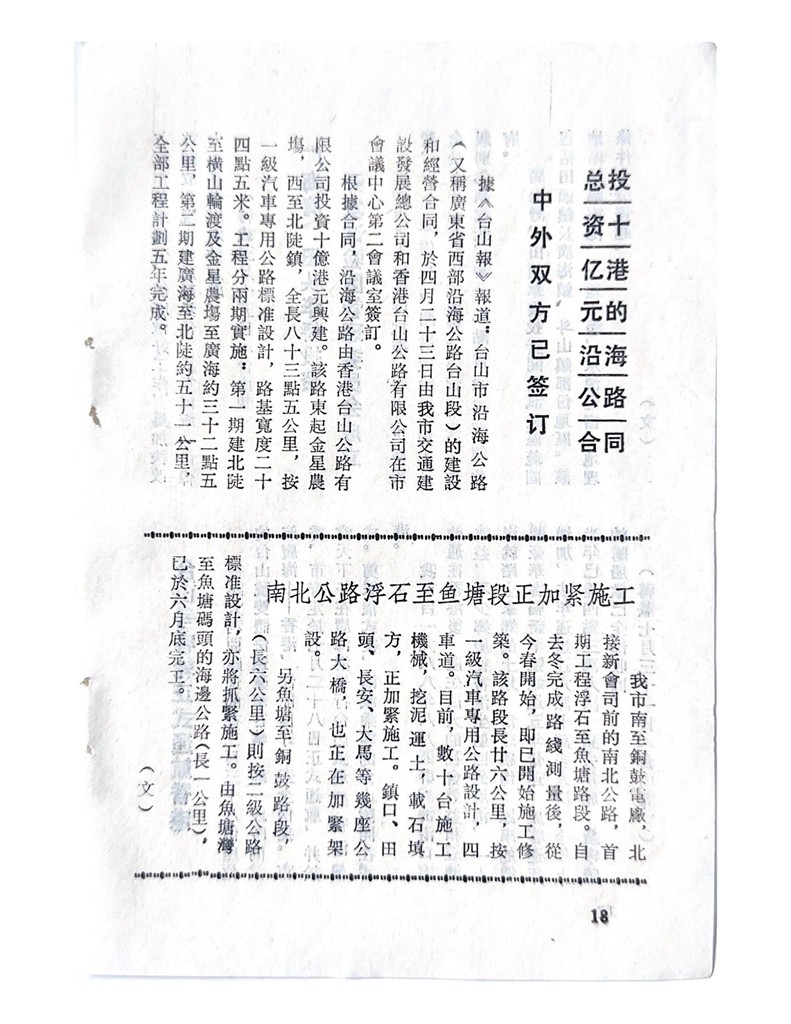 总投
资十
亿港
元的
沿海
公路
合同
中外双方已签订
據《台山報》報道：台山市沿海公路
（又稱廣東省西部沿海公路台山段）的建設
和經營合同，於四月二十三日由我市交通建
設發展總公司和香港台山公路有限公司在市
會議中心第二會議室簽訂。
根據合同，沿海公路由香港台山公路有
限公司投資十億港元興建。該路東起金星農
塲，西至北陡鎮，全長八十三點五公里，按
一級汽車專用公路標准設計，路基寬度二十
四點五米。工程分兩期實施：第一期建北陡
至橫山輪渡及金星農塲至廣海約三十二點五
公里，第二期建廣海至北陡約五十一公里，
全部工程計劃五年完成。
南北公路浮石至鱼塘段正加紧施工
我市南至銅鼓電廠，北
接新會司前的南北公路，首
期工程浮石至魚塘路段。自
去冬完成路綫測量後，從
今春開始，即已開始施工修
築。該路段長廿六公里，按
一級汽車專用公路設計，四
車道。目前，數十台施工
機械，挖泥運土，載石填
方，正加緊施工。鎮口、田
頭、長安、大馬等幾座公
路大橋，也正在加緊架
設。
另魚塘至銅鼓路段，
（長六公里）則按二級公路
標准設計，亦將抓緊施工。由魚塘灣
至魚塘碼頭的海邊公路（長一公里），
已於六月底完工。
（文）
18